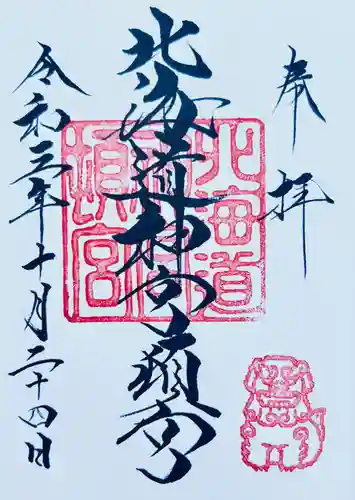 奉拝
北海道神宮頓宮
令和三年十月二十四日
北海道
神宮
頓宮